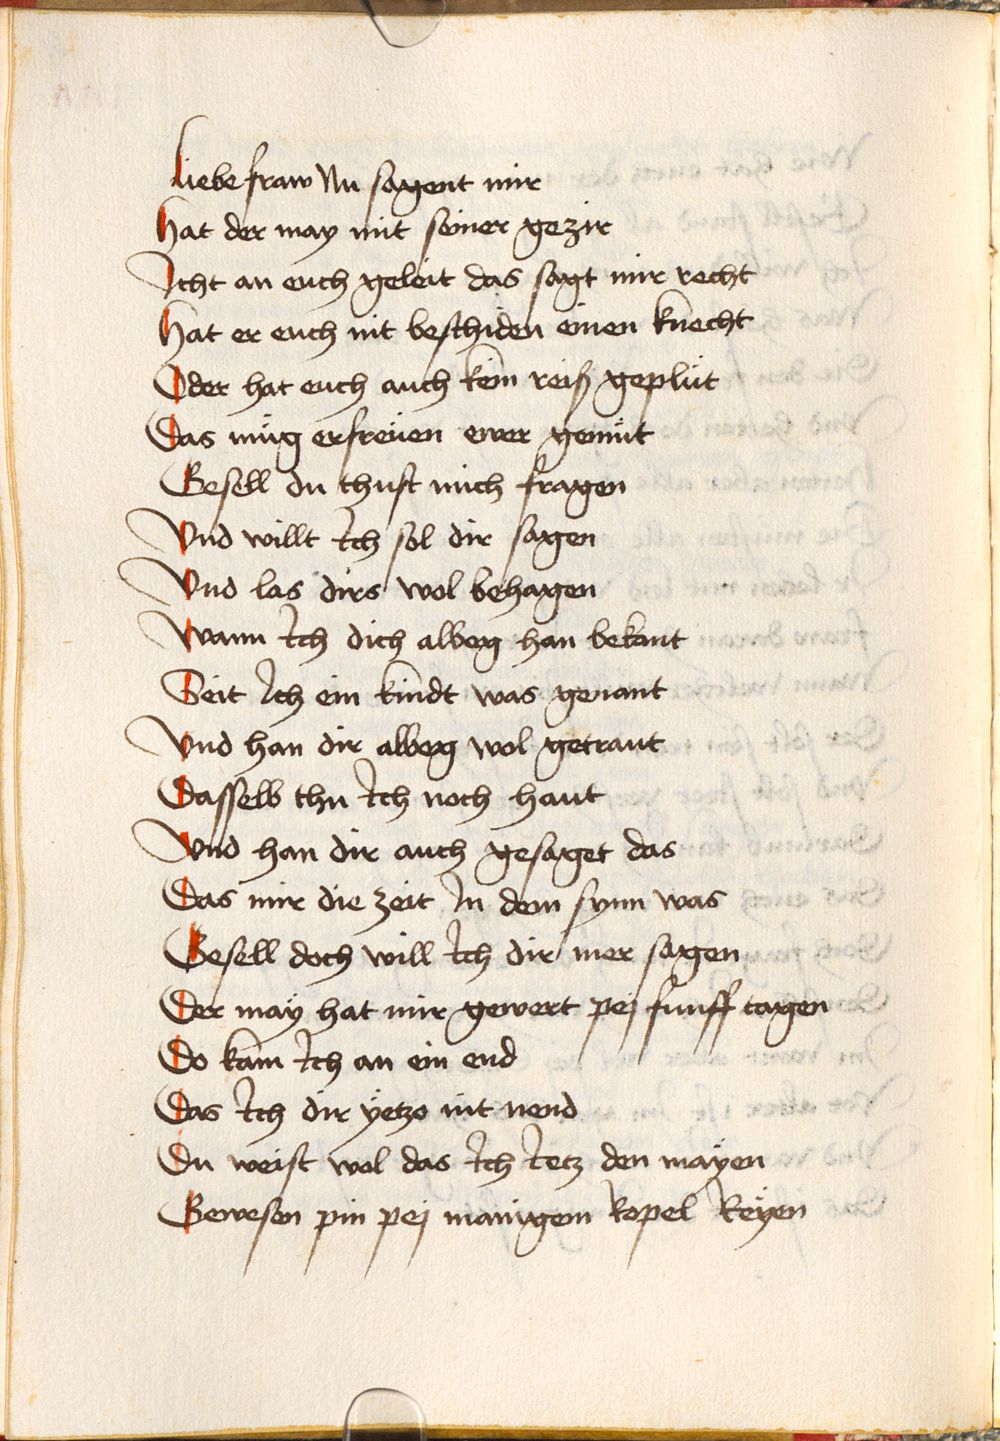 Liebe fraw Nu sagent mir
Hat der may mit seiner gezir
Icht an euch geleit das sagt mir recht
Hat er euch nit beschiden einen knecht
Oder hat euch auch kein reiß geplüt
Das müg erfreüen ewer gemüt
Gesell du thust mich fragen
Vnd willt Ich sol dir sagen
Vnd las dirs wol behagen
Wann Ich dich albeg han bekant
Seit Ich ein kindt was genant
Vnd han dir albeg wol getraut
Dasselb thu Ich noch haut
Vnd han dir auch gesaget das
Das mir die zeit In dem synn was
Gesell doch will Ich dir mer sagen
Der may hat mir gewert pej funff tagen
Do kam Ich an ein end
Das Ich dir yetzo nit nend
Du weist wol das Ich Ietz den mayen
Gewesen pin pej manigem kopel Reyen